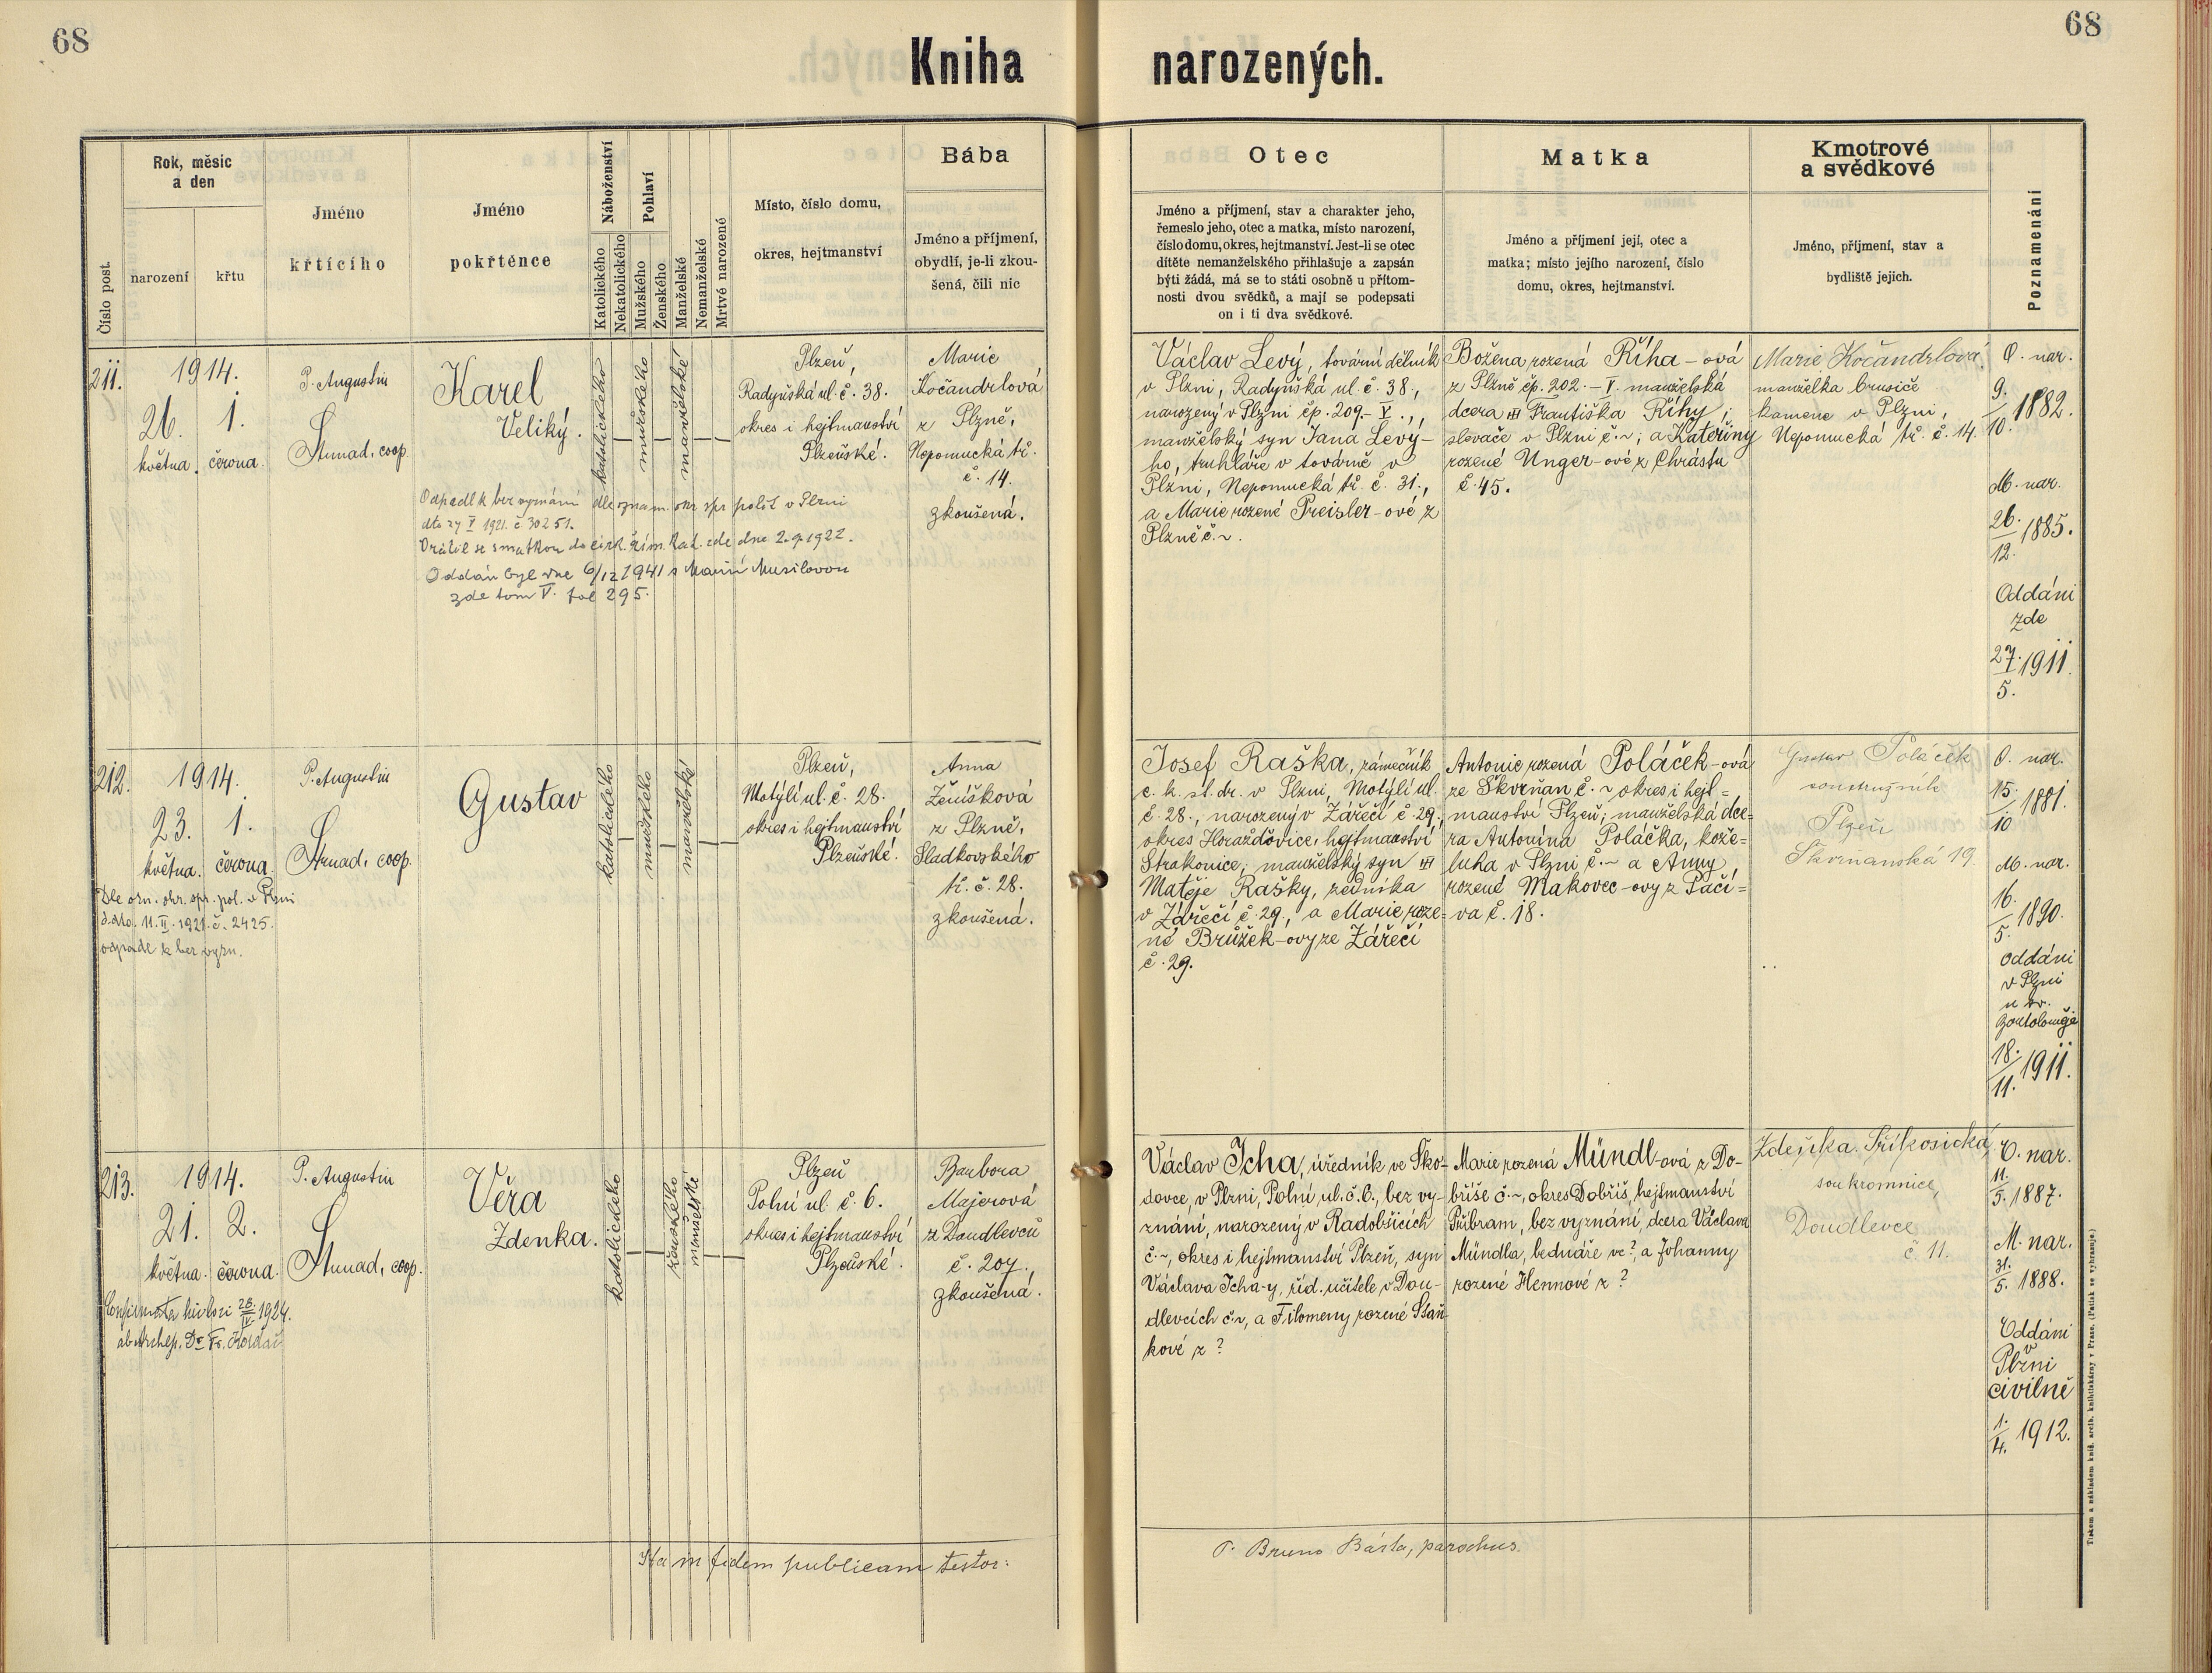 68
68
Kniha narozených.
Číslo post.
Rok, měsíc
a den
narození
křtu
Jméno
křtícího
Jméno
pokřténce
Náboženství
Katolického
Nekatolického
Pohlaví
Mužského
Ženského
Manželské
Nemanželské
Mrtvé narozené
Místo, číslo domu,
okres, hejtmanství
Bába
Jméno a příjmení,
obydlí, je-li zkou-
šená, čili nic
Otec
Jméno a příjmení, stav a charakter jeho,
řemeslo jeho, otec a matka, místo narození,
číslo domu, okres, hejtmanství. Jest-li se otec
dítěte nemanželského přihlašuje a zapsán
býti žádá, má se to státi osobně u přítom-
nosti dvou svědků, a mají se podepsati
on i ti dva svědkové.
Matka
Jméno a příjmení její, otec a
matka; místo jejího narození, číslo
domu, okres, hejtmanství.
Kmotrové
a svědkové
Jméno, příjmení, stav a
bydliště jejich.
Poznamenání
211.
1914.
26. 1.
května. června.
P. Augustin
Strnad, coop.
Karel
Veliký.
katolického
mužského
manželské
Plzeň,
Radyňská ul. č. 38.
okres i hejtmanství
Plzeňské.
Marie
Kočandrlová
z Plzně,
Nepomucká tř.
č. 14.
zkoušená.
Odpadl k bez vyznání dle oznam. okr. spr. polit. v Plzni
dto 27 V 1921. č 30251.
Vrátil se s matkou do církve řím. kat. zde dne 2.9.1922.
Oddán byl dne 6/12 1941 s Marií Musilovou
zde tom V. fol 295.
Václav Levý, tovární dělník
v Plzni, Radyňská ul. č. 38,
narozený v Plzni čp. 209.-V.,
manželský syn Jana Levý-
ho, truhláře v továrně v
Plzni, Nepomucká tř. č. 31.,
a Marie rozené Preisler-ové z
Plzně č. ~.
Božena rozená Říha-ová
z Plzně čp. 202.-V. manželská
dcera Františka Říhy,
slevače v Plzni č. ~; a Kateřiny
rozené Unger-ové z Chrástu
č. 45.
Marie Kočandrlová
manželka brusiče
kamene v Plzni,
Nepomucká tř. č. 14.
O. nar.
9./10. 1882.
M. nar.
26./12. 1885.
Oddáni
zde
27./5. 1911.
212.
1914.
23. 1.
května. června.
P. Augustin
Strnad, coop.
Dle ozn. okr. spr. pol. v Plzni
dato. 11. II. 1921. č. 2425.
odpadl k bez vyzn.
Gustav
katolického
mužského
manželské
Plzeň,
Motýlí ul. č. 28.
okres i hejtmanství
Plzeňské.
Anna
Ženíšková
z Plzně,
Sladkovského
tř. č. 28.
zkoušená.
Josef Raška, zámečník
c. k. st. dr. v Plzni, Motýlí ul.
č. 28., narozený v Zářečí č. 29.,
okres Horažďovice, hejtmanství
Strakonice; manželský syn
Matěje Rašky, zedníka
v Zářečí č. 29., a Marie roze-
né Brůžek-ovy ze Zářečí
č. 29.
Antonie rozená Poláček-ová
ze Skvrňan č. ~ okres i hejt=
manství Plzeň; manželská dce=
ra Antonína Poláčka, kože=
luha v Plzni č. ~ a Anny
rozené Makovec-ovy z Pačí=
va č. 18.
Gustav Poláček
soustružník
Plzeň
Skvrňanská 19.
O. nar.
15./10. 1881.
M. nar.
16./5. 1890.
Oddáni
v Plzni
u sv.
Bartoloměje
18./11. 1911.
213.
1914.
21. 2.
května. června.
P. Augustin
Strnad, coop.
Confirmata
28./IV 1924.
ab Archiep. Dr Fr. Kordač
Věra
Zdenka.
katolického
ženského
manželské
Plzeň
Polní ul. č. 6.
okres i hejtmanství
Plzeňské.
Barbora
Majerová
z Doudlevců
č. 207.,
zkoušená.
Václav Icha, úředník ve Ško-
dovce, v Plzni, Polní ul. č. 6., bez vy-
znání, narozený v Radobčicích
č. ~, okres i hejtmanství Plzeň, syn
Václava Icha-y, říd. učitele v Dou-
dlevcích č. ~, a Filomeny rozené Staň-
kové z ?
Marie rozená Mündl-ová z Do-
bříše č. ~, okres Dobříš, hejtmanství
Příbram, bez vyznání, dcera Václava
Mündla, bednáře ve ?, a Johanny
rozené Hennové z ?
Zdeňka Příkosická,
soukromnice,
Doudlevce
č. 11.
O. nar.
11./5. 1887.
M. nar.
31./5. 1888.
Oddáni
v
Plzni
civilně
1./4. 1912.
Ita in fidem publicam testor:
P. Bruno Bárta, parochus.
Tiskem a nákladem kníž. arcib. knihtiskárny v Praze. (Patisk se vyhrazuje.)